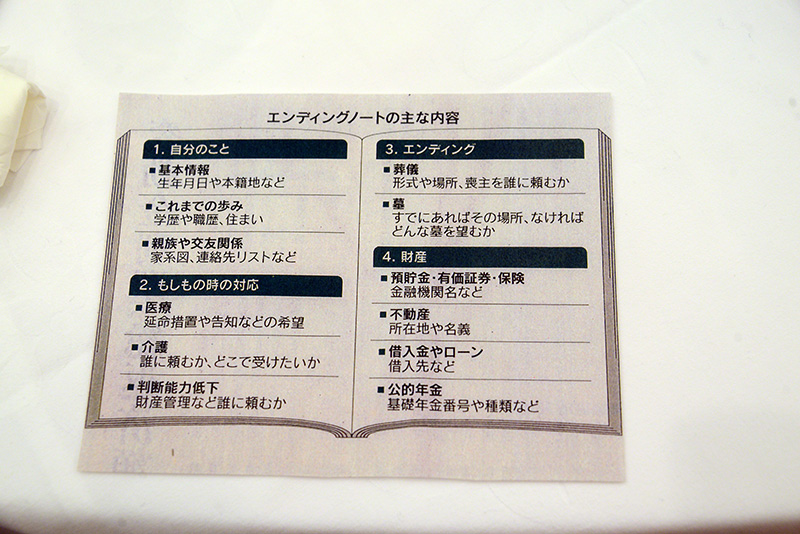 エンディングノートの主な内容
1. 自分のこと
■基本情報
生年月日や本籍地など
■これまでの歩み
学歴や職歴、住まい
■親族や交友関係
家系図、連絡先リストなど
2. もしもの時の対応
■医療
延命措置や告知などの希望
■介護
誰に頼むか、どこで受けたいか
■判断能力低下
財産管理など誰に頼むか
3. エンディング
■葬儀
形式や場所、喪主を誰に頼むか
■墓
すでにあればその場所、なければ
どんな墓を望むか
4. 財産
■預貯金・有価証券・保険
金融機関名など
■不動産
所在地や名義
■借入金やローン
借入先など
■公的年金
基礎年金番号や種類など